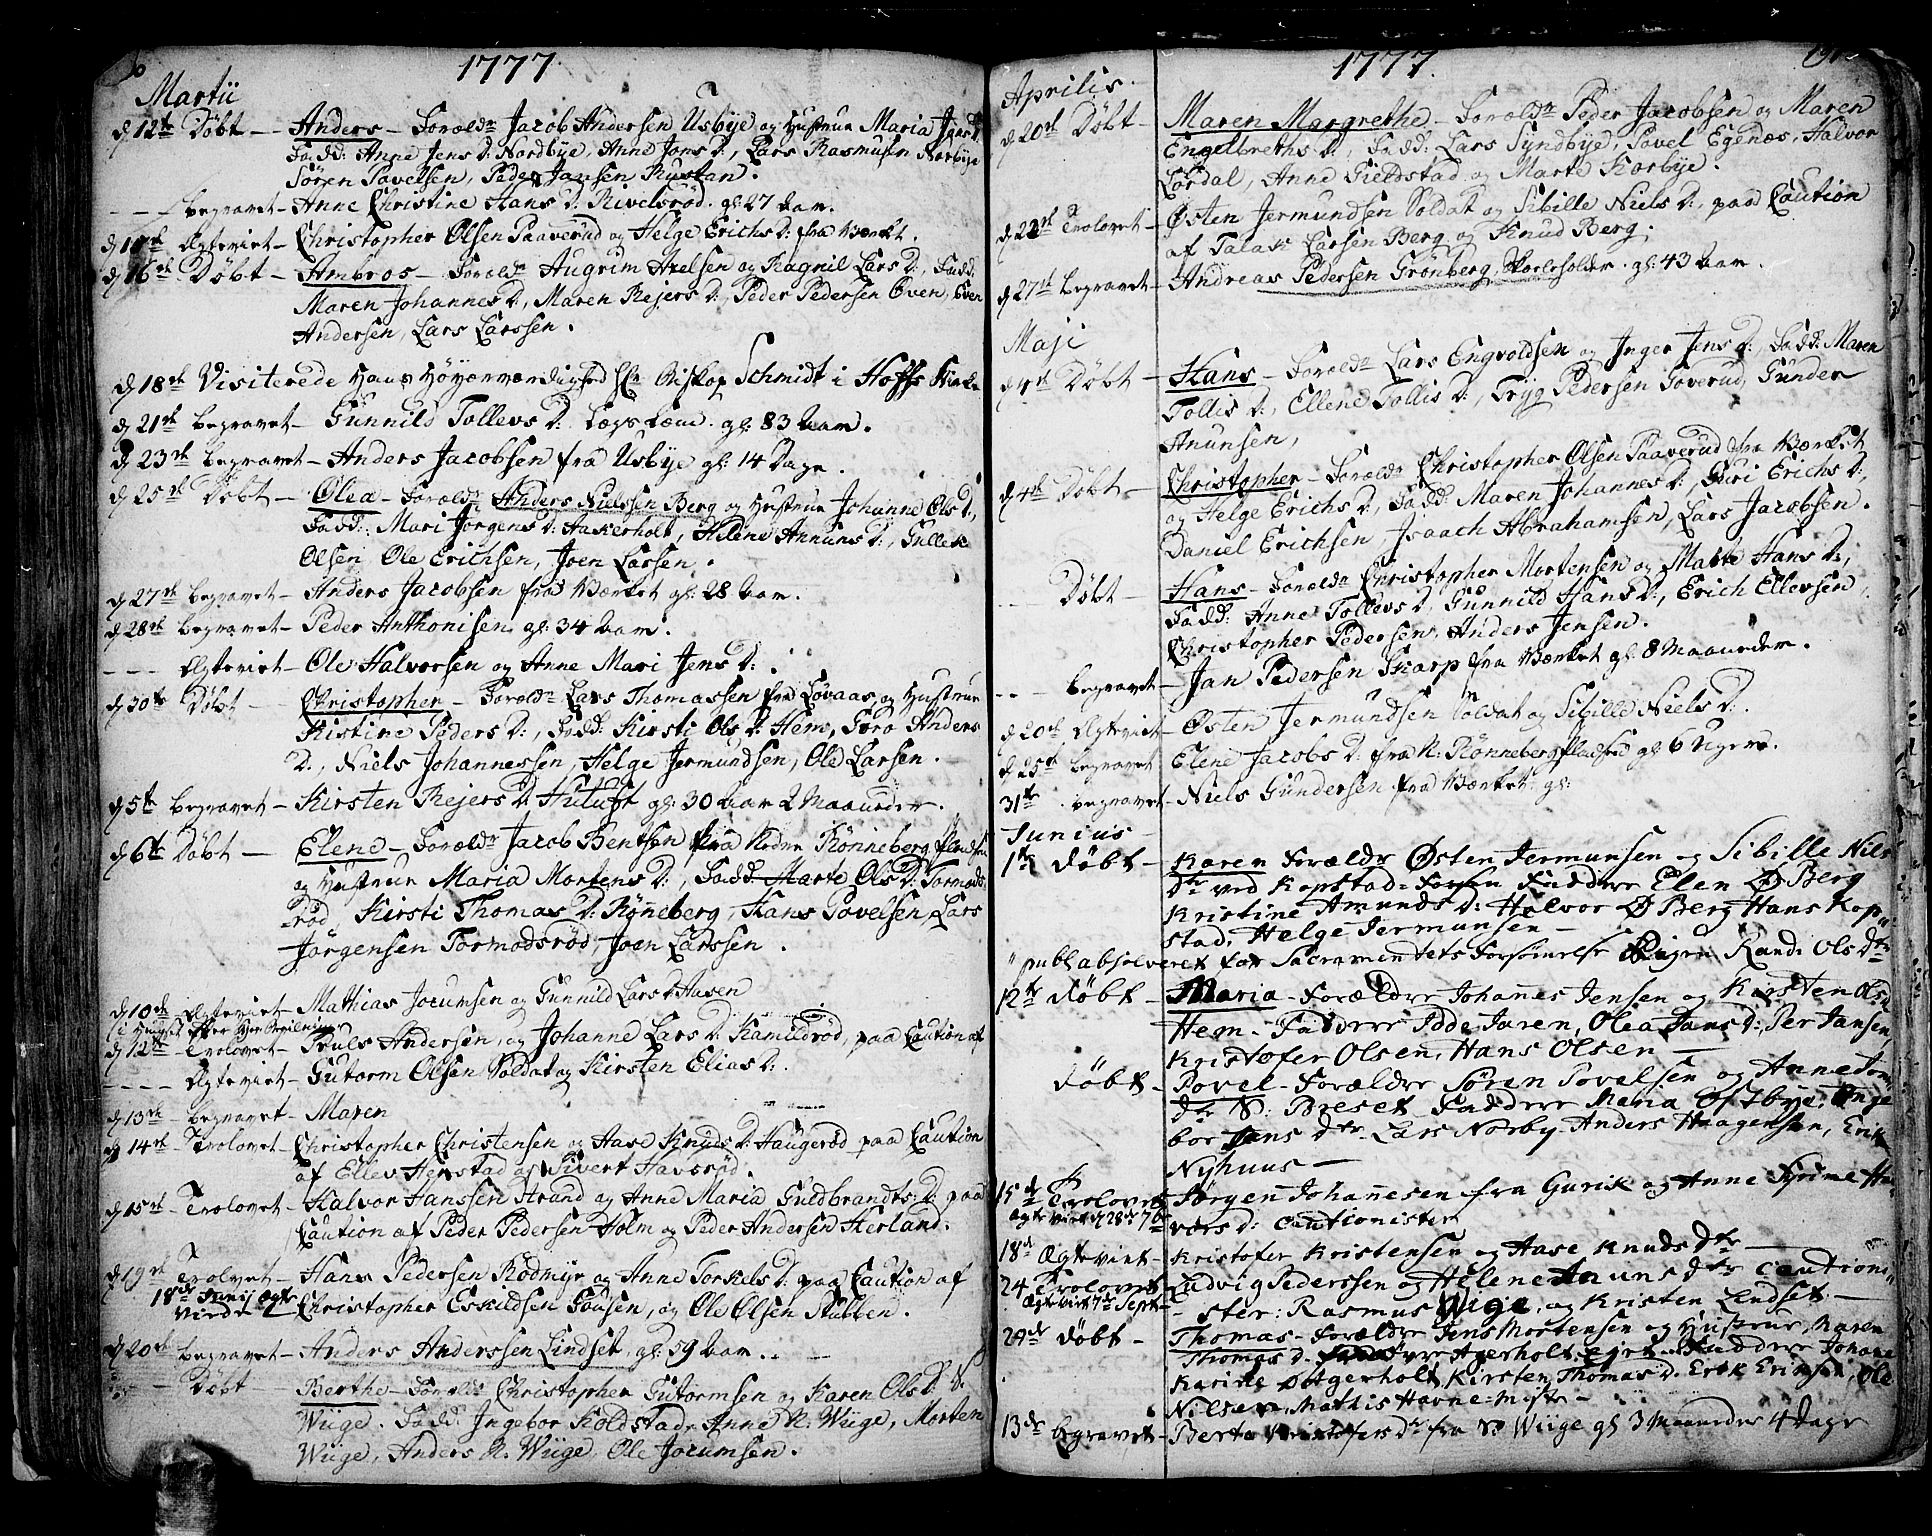 1777
Martii
d 12te Døbt — Anders — Forældr Jacob Andersen Usbye og Hustrue Maria Jans D
Fadd: Anne Jens D: Nordbye, Anne Jons D:, Lars Rasmusen Norbye
Søren Povelsen, Peder Jansen Rustan.
begravet — Anne Christine Hans D: Rivelsrød. gl: 27 Aar.
Ægteviet — Christopher Olsen Paaverud og Helge Erichs D: fra Værket.
d 16de Døbt — Ambros — Foreldr Augrim Axelsen og Ragnil Lars D:, Fadd:
Maren Johannes D:, Maren Rejers D: Peder Pedersen Oven, Even
Andersen, Lars Larssen.
d 18de Visiterede Hans Høyærværdighed Hr Biskop Schmidt i Hoffs Kirke
d 21de begravet — Gunnild Tollevs D: Lægs Lem. gl: 83 Aar.
d 23de begravet — Anders Jacobsen fra Usbye gl: 14 Dage.
d 25de Døbt — Olea — Foreldr Anders Nielssen Berg og Hustrue Johanne Ols D:,
Fadd: Mari Jørgens D: Haskerholt, Helene Annuns D:, Gullek
Olsen Ole Erichsen, Joen Larsen.
d 27de begravet — Anders Jacobsen fra Værket gl: 28 Aar.
d 28de begravet — Peder Anthonisen gl: 34 Aar.
Ægteviet — Ole Halvorsen og Anne Mari Jens D:
d 30te Døbt — Christopher — Foreldr Lars Thomassen fra Løvaas, og Hustrue
Kistine Peders D:, Fadd: Kirsti Ols D: Hem, Goro Anders
D:, Niels Johannessen, Helge Jermundsen, Ole Larsen.
d 5te begravet — Kirsten Rejers D: Hutuft gl: 30 Aar 2 Maaneder.
d 6te Døbt — Elene — Foreldr Jacob Bentsen fra Nedre Rønneberg Pladsen
og Hustrue Maria Mortens D:, Fadd: Marte Ols D: Tormods
rød, Kirsti Thomas D: Rønneberg, Hans Povelsen, Lars
Jørgensen Tormodsrød, Joen Larssen.
d 10de Ægteviet — Mathias Jocumsen og Gunnild Lars D: Aasen
d 12te Trolovet — Truls Andersen, og Johanne Lars D: Kamildrød, paa Caution af
Ægteviet — Gutorm Olsen Soldat og Kirsten Elias D:.
d 13de begravet — Maren
d 14de Trolovet — Christopher Christensen og Aase Knuds D: Haugerød paa Caution
af Ellev Henstad og Sivert Havsrød.
d 15de Trolovet — Halvor Hanssen Strand og Anne Maria Guldbrandts D: paa
Caution af Peder Pedersen Holm og Peder Andersen Herland.
d 19de Trolovet — Hans Pedersen Rødmyr og Anne Torkels D: paa Caution af
18de Junij Ægte
Virde
Christopher Eskildsen Gousen, og Ole Olsen Stubben.
d 20de begravet — Anders Anderssen Lindset, gl: 59 Aar.
Døbt — Berthe — Foreldr Christopher Gutormsen og Karen Ols D: S.
Wiige. Fadd: Ingebor Koldstad, Anne N. Wiige, Morten
Wiige, Anders N. Wiige, Ole Jocumsen.
1777.
Aprilis.
d 20de Døbt — Maren Margrethe — Foreldr Peder Jacobsen og Maren
Engelbreths D:, Fadd: Lars Syndbye, Povel Egenæs, Halvor
Lørdal, Anne Gieldstad og Marte Korbye.
d 22de Trolovet — Østen Jermundsen Soldat og Sibille Niels D:, paa Caution
af Talak Larsen Berg og Knud Berg.
d 27de begravet — Andreas Pedersen Grønberg, Skoleholder. gl: 43 Aar.
Maji
d 4de Døbt — Hans — Foreldr Lars Engvoldsen og Inger Jens D:, Fadd: Maren
Tollis D:, Ellene Tollis D:, Tryg Pedersen Goverud, Gunder
Anunsen,
d 4de Døbt — Christopher — Foreldr Christopher Olsen Paaverud fra Værket
og Helge Erichs D:, Fadd: Maren Johannes D:, Guri Erichs D:
Daniel Erichsen, Isaach Abrahamsen, Lars Jacobsen.
Døbt — Hans — Foreldr Christopher Mortensen og Marte Hans D:,
Fadd: Anne Tollevs D:, Gunnild Hans D:, Erich Ellevsen,
Christopher Pedersen, Anders Jensen.
begravet — Jan Pedersen Skarp fra Værket gl: 8 Maaneder.
d 20de Ægteviet — Østen Jermundsen Soldat og Sibille Niels D:.
d 25de begravet — Elene Jacobs D: fra N: Rønneberg Pladsen gl: 6 Uger.
31te begravet — Niels Gundersen fra Værket gl:
Junius
1te døbt — Karen Forældre Østen Jermunsen og Sibille Nils
dtr ved Kopstad Faddere Elen Ø Berg
Kristine Amunds D: Halvor Ø Berg Hans Kop
stad, Helge Jermunsen —
publ absolveret for Sacramentets Forsømelse Pigen Randi Ols dtr
12te døbt — Maria — Forældre Johannes Jensen og Kirsten Ols D
Hegn. Faddere Idde Jaren, Olea Jans D:, Per Jansen,
Kristofer Olsen, Hans Olsen —
døbt — Povel — Forældre Søren Povelsen og Anne Jon
dtr S: Breset Faddere Maria Ols Usbye, Inge
bor Jans dtr. Lars Norby Anders Haagensen, Erik
Nyhuus —
15de Trolovet — Jørgen Johannesen fra Gurik og Anne Hal
Ægteviet d 28de 7br
vors D: Cautionister
18d Ægteviet — Kristofer Kristensen og Aase Knuds dtr —
24 Trolovet — Ludvig Pederssen og Helene Anuns dtr Cautioni
Ægteviet 7de Sept
ster: Rasmus Wiige, og Kristen Lindset —
24de døbt — Thomas — Forældre Jens Mortensen og Hustrue, Maren
Thomas D. Agerholt Faddere Johane
Karine Ø Agerholt Kirsten Thomas D. Erik Eriksen, Ole
Nilsen, Mathis Havne
13de begravet — Berta Kristofers dtr fra S: Wiige gl 3 Maaneder 4 Dage